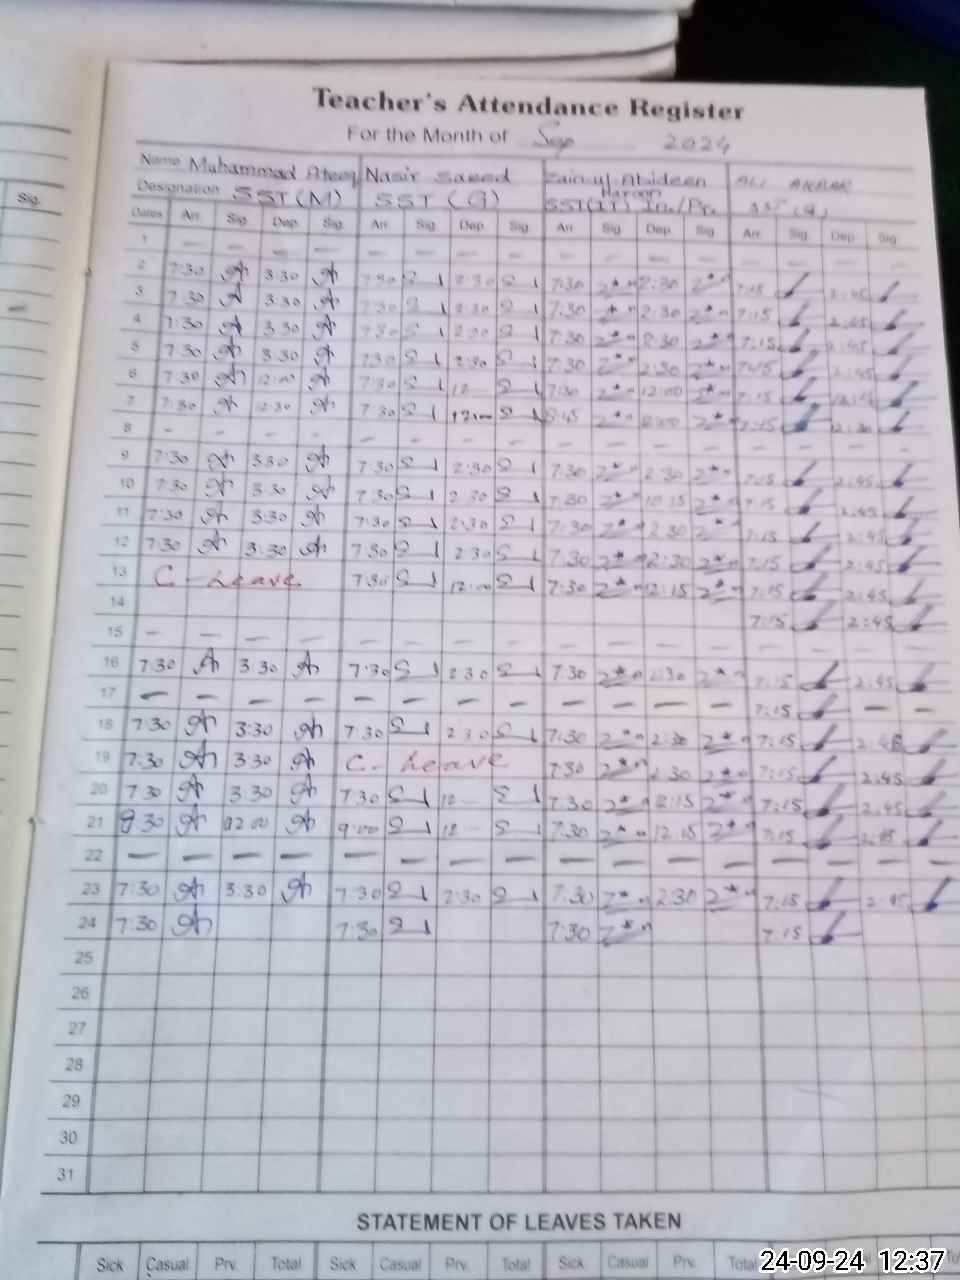 Teacher's Attendance Register
For the Month of Sep 2024
Name Muhammad Ateeq Nasir Saeed Zain-ul-Abideen Haroon ALI
Designation SST (M) SST (G) SST(IT) In./Pr.
Dates Arr. Sig. Dep. Sig. Arr. Sig. Dep. Sig. Arr. Sig. Dep. Sig. Arr. Sig. Dep. Sig.
Sig.
1 — — — — — — — — — — — —
2 7:30 3:30 7:30 2:30 7:30 2:30 7:15 2:45
3 7:30 3:30 7:30 2:30 7:30 2:30 7:15 2:45
4 7:30 3:30 7:30 2:30 7:30 2:30 7:15 2:45
5 7:30 3:30 7:30 2:30 7:30 2:30 7:15 2:45
6 7:30 12:00 7:30 12 7:30 12:00 7:15
7 7:30 12:30 7:30 12:00 7:15
8 - - - - - - - - - - - -
9 7:30 3:30 7:30 2:30 7:30 2:30 7:15 2:45
10 7:30 3:30 7:30 2:30 7:30 7:15 2:45
11 7:30 3:30 7:30 2:30 7:30 2:30 7:15 2:45
12 7:30 3:30 7:30 2:30 7:30 2:30 7:15 2:45
13 C - Leave 7:30 12:00 7:30 12:15 7:15 2:45
14 7:15 2:45
15 — — — — — — — — — — — —
16 7:30 3:30 7:30 2:30 7:30 2:30 7:15 2:45
17 — — — — — — — — — — — — 7:15 — —
18 7:30 3:30 7:30 2:30 7:30 2:30 7:15 2:45
19 7:30 3:30 C - Leave 7:30 2:30 7:15 2:45
20 7:30 3:30 7:30 12 7:30 12:15 7:15 2:45
21 9:30 12:00 9:00 12 7:30 12:15 7:15 2:45
22 — — — — — — — — — — — — — — — —
23 7:30 3:30 7:30 2:30 7:30 2:30 7:15 2:45
24 7:30 7:30 7:30 7:15
25
26
27
28
29
30
31
STATEMENT OF LEAVES TAKEN
Sick Casual Prv. Total Sick Casual Prv. Total Sick Casual Prv. Total
24-09-24 12:37